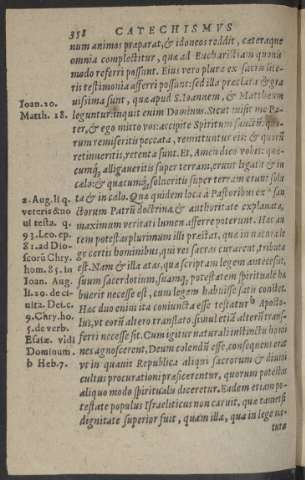 358 CATECHISMVS
num animos præparat, & idoneos reddit, cæteraque
omnia complectitur, quæ ad Eucharistiam quouis
modo referri possunt. Eius verò plura ex sacris lite-
ris testimonia afferri possunt: sed illa præclara & gra
uissima sunt, quæ apud S. Ioannem, & Matthæum
leguntur: inquit enim Dominus. Sicut misit me Pa-
ter, & ego mitto vos: accipite Spiritum sanctũ. quo-
rum remiseritis peccata, remittuntur eis: & quorũ
retinueritis, retenta sunt. Et, Amen dico vobis: quæ-
cumq; alligaueritis super terram, erunt ligata & in
cælo: & quæcumq; solueritis super terram erunt solu
ta & in cælo. Qui quidem loci à Pastoribus ex a san
ctorum Patrũ doctrina, & authoritate explanata,
maximum veritati lumen afferre poterunt. Hæc au
tem potestas plurimum illi præstat, quæ in naturæ le
ge certis hominibus, qui res sacras curarent, tributa
est. Nam & illa ætas, quæ scriptam legem antecessit,
suum sacerdotium, suamq; potestatem spiritualẽ ha
buerit necesse est, cum legem habuisse satis constet.
Hæc duo enim ita coniuncta esse testatur b Aposto-
lus, vt eorũ altero translato, simul etiã alterũ trans-
ferri necesse sit. Cum igitur naturali instinctu homi
nes agnoscerent, Deum colendũ esse, consequens erat
vt in quauis Republica aliqui sacrorum & diuini
cultus procurationi præficerentur, quorum potestas
aliquo modo spiritualis diceretur. Eadem etiam po-
testate populus Israeliticus non caruit, quæ tametsi
dignitate superior fuit, quàm illa, qua in lege na-
turæ
Ioan. 20.
Matth. 18.
a. Aug. li q.
veteris & no
ui testa. q.
93. Leo. ep.
81. ad Dio-
scorũ Chry.
hom. 85. in
Ioan. Aug.
li. 20. de ci-
uita. Dei. c.
9. Chry. ho.
5. de verb.
Esaiæ. vidi
Dominum.
b Heb. 7.